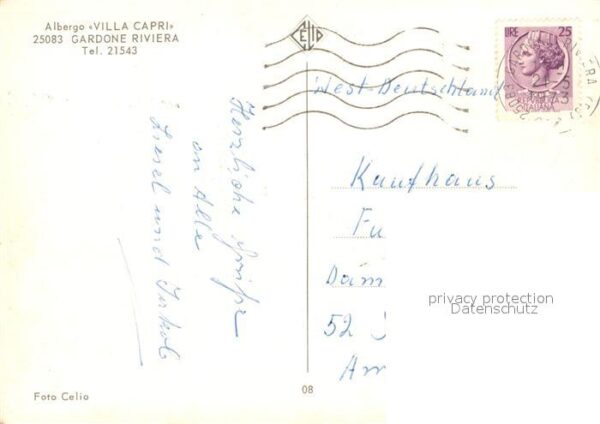 Albergo «VILLA CAPRI»
25083 GARDONE RIVIERA
Tel. 21543
CELIO
LIRE 25
REPUBBLICA
ITALIANA
25083
1973
West-Deutschland
Herzliche Grüße
an Alle
Liesel und Jakob
Kaufhaus
Fu
Däm
52
Am
privacy protection
Datenschutz
Foto Celio
08